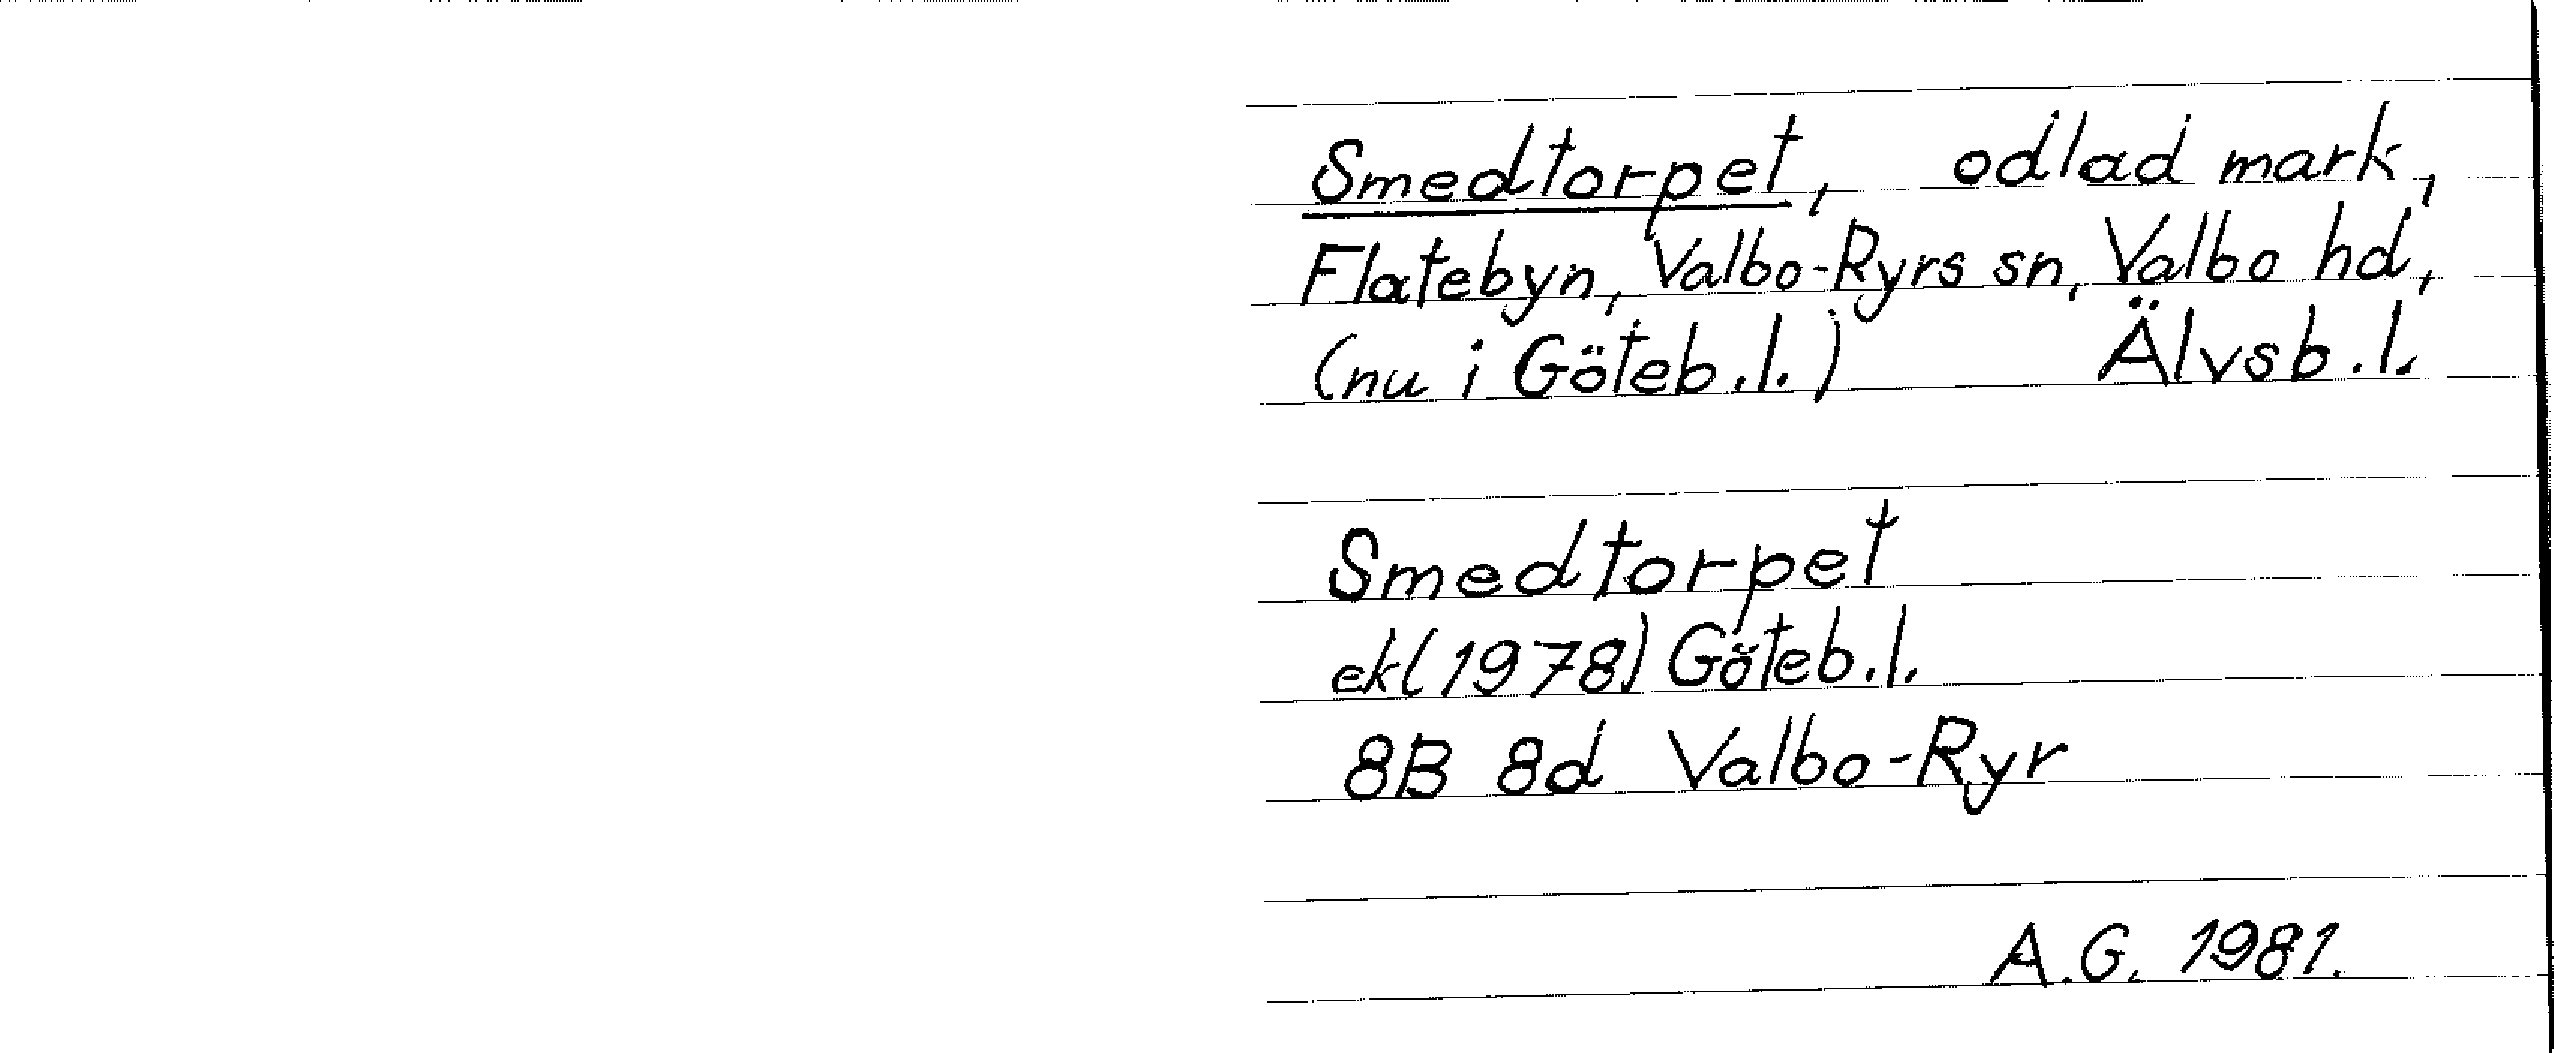 Smedtorpet, odlad mark,
Flatebyn, Valbo-Ryrs sn, Valbo hd,
(nu i Göteb.l.) Älvsb.l.
Smedtorpet
ek(1978) Göteb.l.
8B 8d Valbo-Ryr
A.G. 1981.